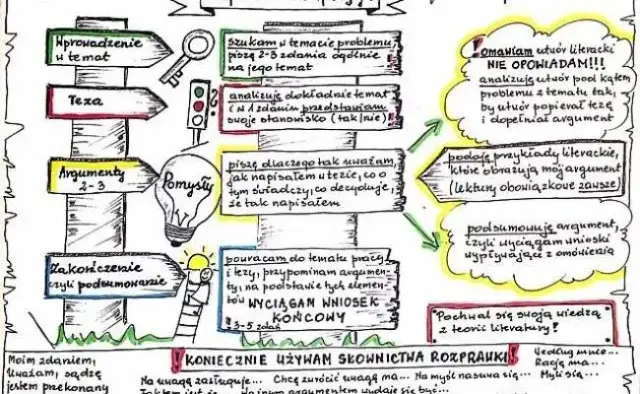 Wprowadzenie
w temat
szukam w temacie problemu,
piszę 2-3 zdania ogólnie
na jego temat
Teza
analizuję dokładnie temat
i w 1 zdaniu przedstawiam
swoje stanowisko (tak/nie)
Argumenty
2-3
Pomysły
piszę dlaczego tak uważam,
jak napisałem w tezie, co o
tym świadczy, co decyduje,
że tak napisałem
Zakończenie
czyli podsumowanie
powracam do tematu pracy
i tezy, przypominam argumen-
ty, na podstawie tych elemen-
tów WYCIĄGAM WNIOSEK
KOŃCOWY
3-5 zdań
! omawiam utwór literacki
NIE OPOWIADAM!!!
analizuję utwór pod kątem
problemu z tematu tak,
by utwór popierał tezę
i dopełniał argument
podaję przykłady literackie,
które obrazują mój argument
(lektury obowiązkowe zawsze)
podsumowuję argument,
czyli wyciągam wnioski
wypływające z omówienia
Pochwal się swoją wiedzą
z teorii literatury!
! KONIECZNIE UŻYWAM SŁOWNICTWA ROZPRAWKI !
Moim zdaniem,
Uważam, sądzę
jestem przekonany
Na uwagę zasługuje... Chcę zwrócić uwagę na... Na myśl nasuwa się...
Według mnie...
Rację ma...
Myślę...